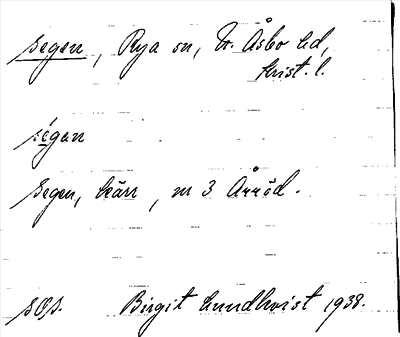 segen, Rya sn, N. Åsbo hd,
Krist. l.
ségen
Segen, kärr, nr 3 Årröd.
sOs. Birgit Lundkvist 1938.